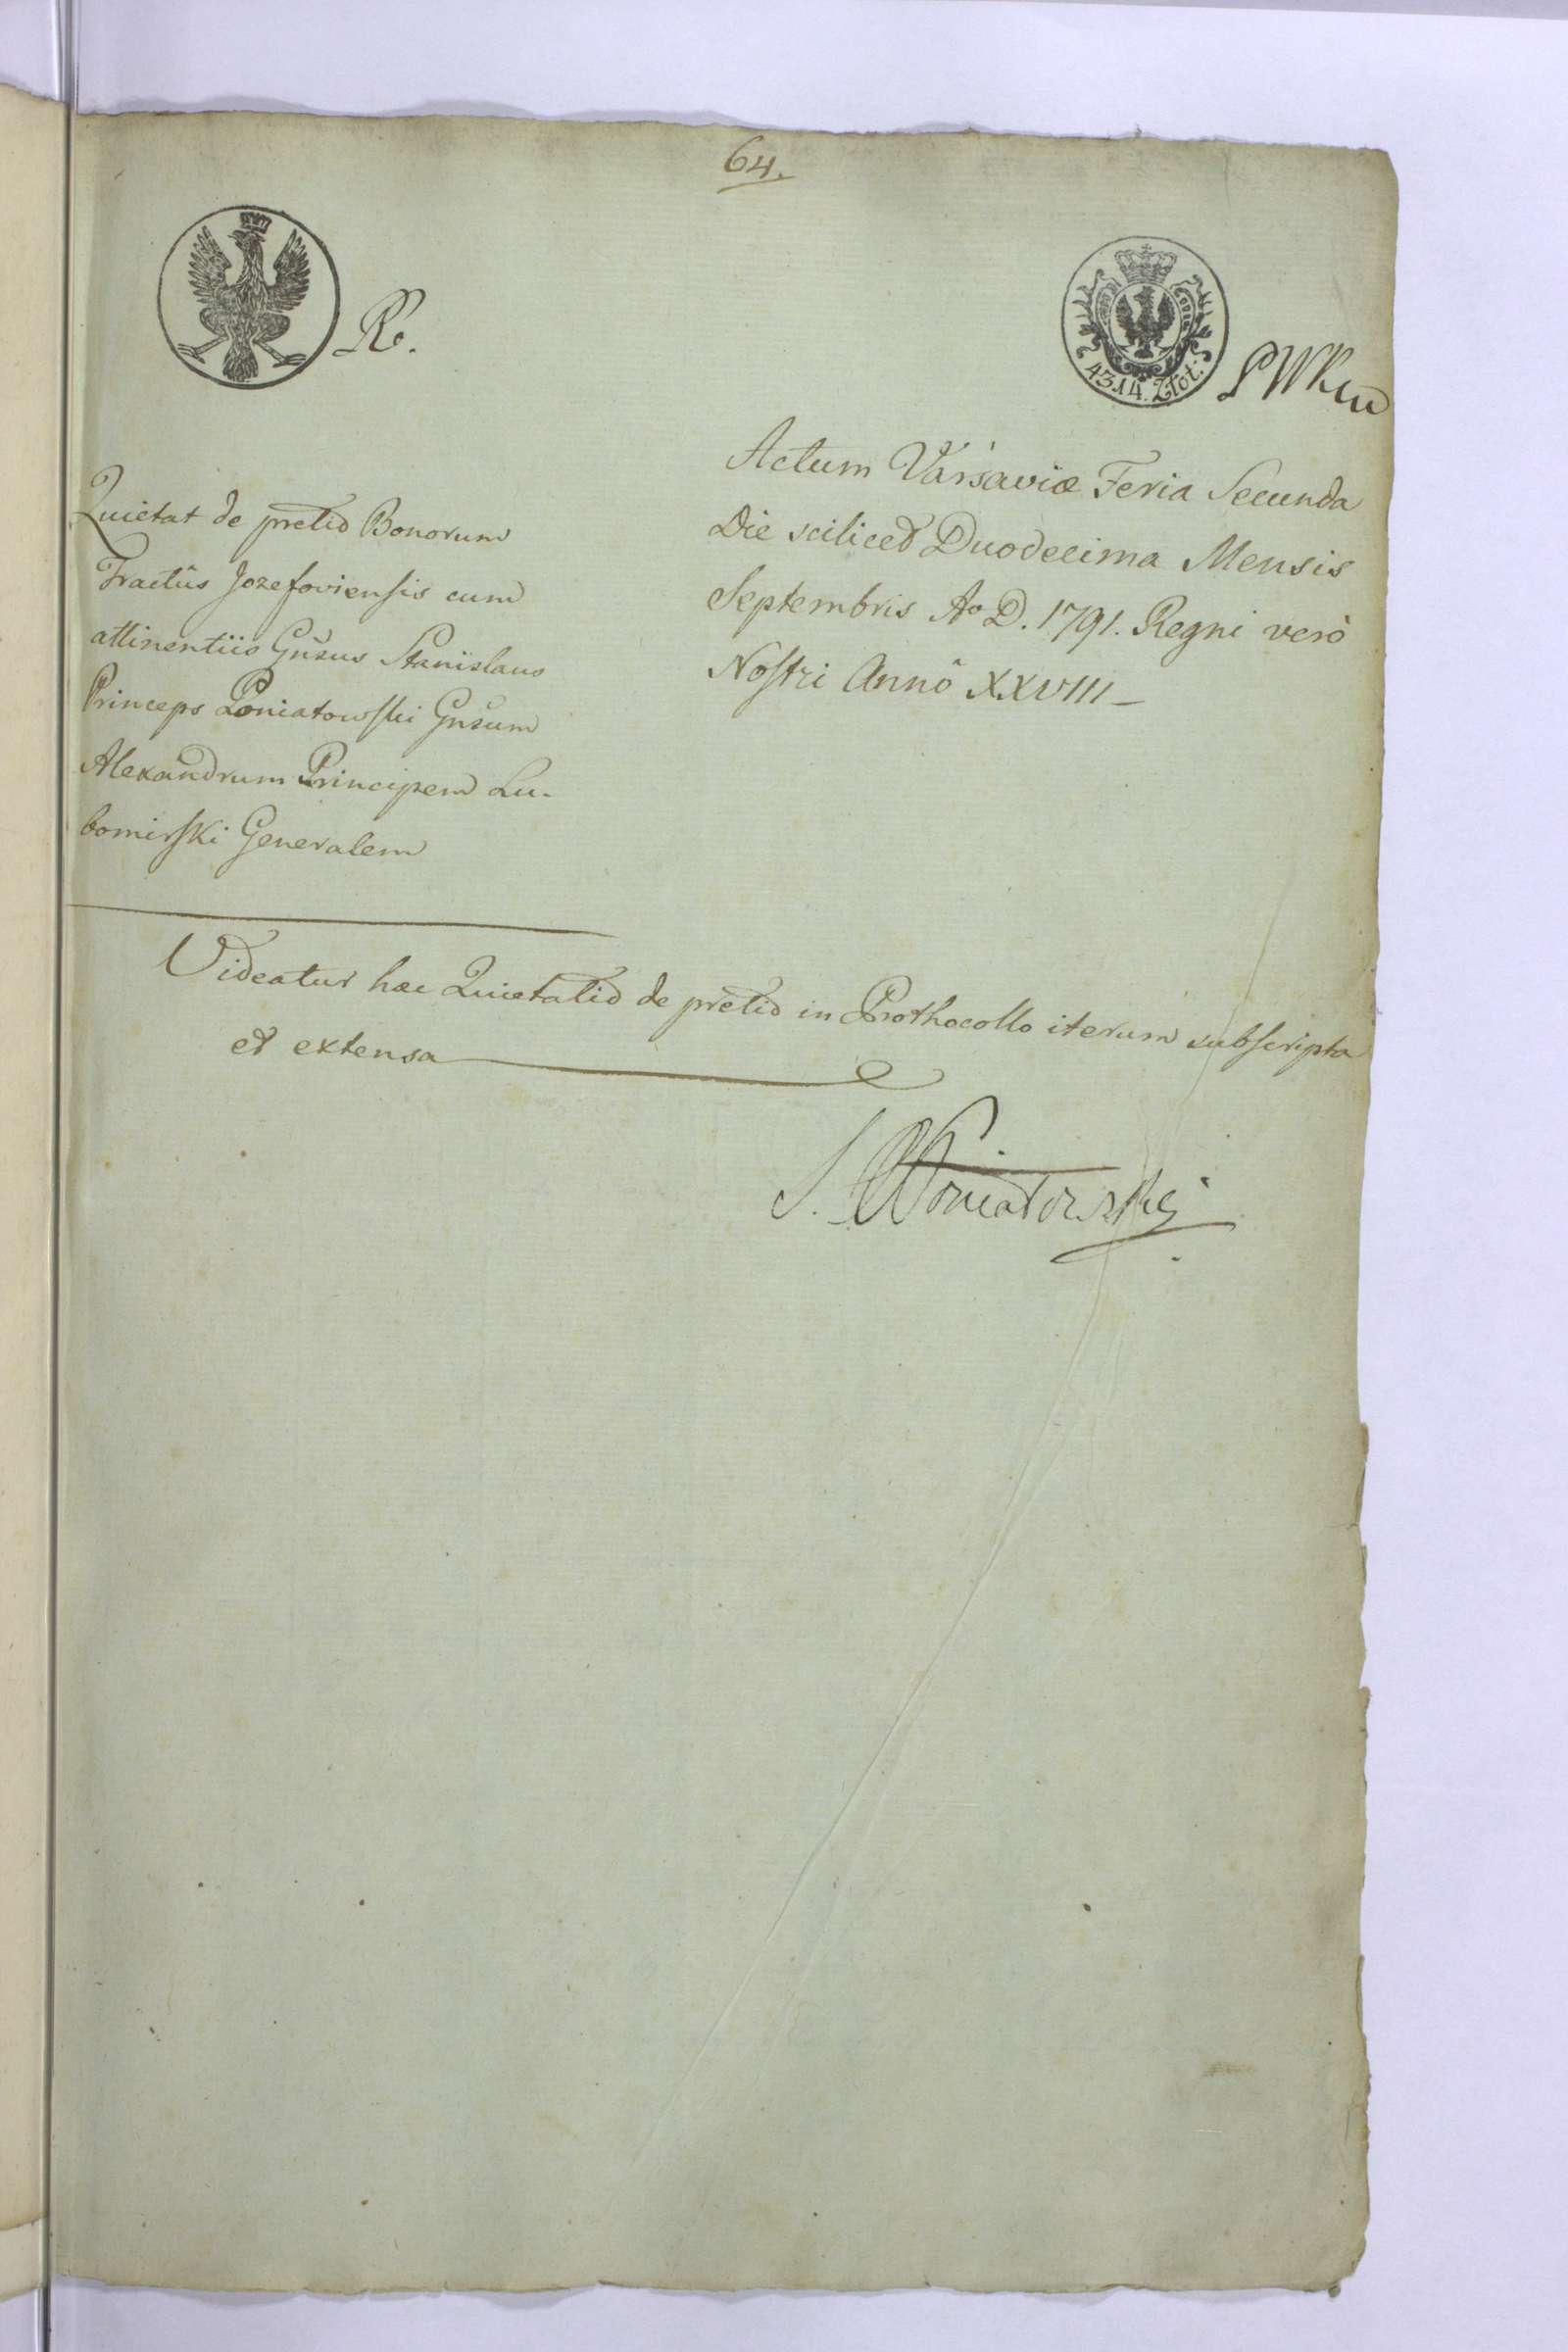 64.
R.
4314. Złot:
Actum Varsaviæ Feria Secunda
Die scilicet Duodecima Mensis
Septembris Ao D. 1791. Regni verò
Nostri Annô XXVIII_
Quietat de pretio Bonorum
Tractûs Jozefoviensis cum
attinentiis Gnsus Stanislaus
Princeps Poniatowski Gnsum
Alexandrum Principem Lu-
bomirski Generalem
Videatur hæc Quietatio de pretio in Prothocollo iterum subscripta
et extensa
S. Poniatowski